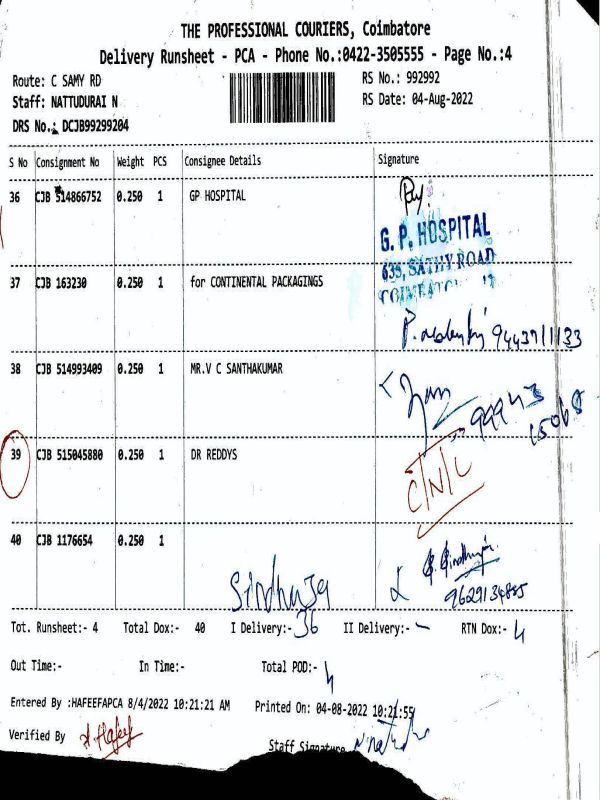 THE PROFESSIONAL COURIERS, Coimbatore
Delivery Runsheet - PCA - Phone No.:0422-3505555 - Page No.:4
Route: C SAMY RD RS No.: 992992
Staff: NATTUDURAI N RS Date: 04-Aug-2022
DRS No.: DCJB99299204
S No Consignment No Weight PCS Consignee Details Signature
36 CJB 514866752 0.250 1 GP HOSPITAL
G. P. HOSPITAL
639, SATHY ROAD
37 CJB 163230 0.250 1 for CONTINENTAL PACKAGINGS
38 CJB 514993409 0.250 1 MR.V C SANTHAKUMAR
39 CJB 515045880 0.250 1 DR REDDYS
C/N/L
40 CJB 1176654 0.250 1
Sindhuja
9629134885
Tot. Runsheet:- 4 Total Dox:- 40 I Delivery:- 36 II Delivery:- - RTN Dox:- 4
Out Time:- In Time:- Total POD:- 4
Entered By :HAFEEFAPCA 8/4/2022 10:21:21 AM Printed On: 04-08-2022 10:21:55
Verified By Hafeef
Staff Signature